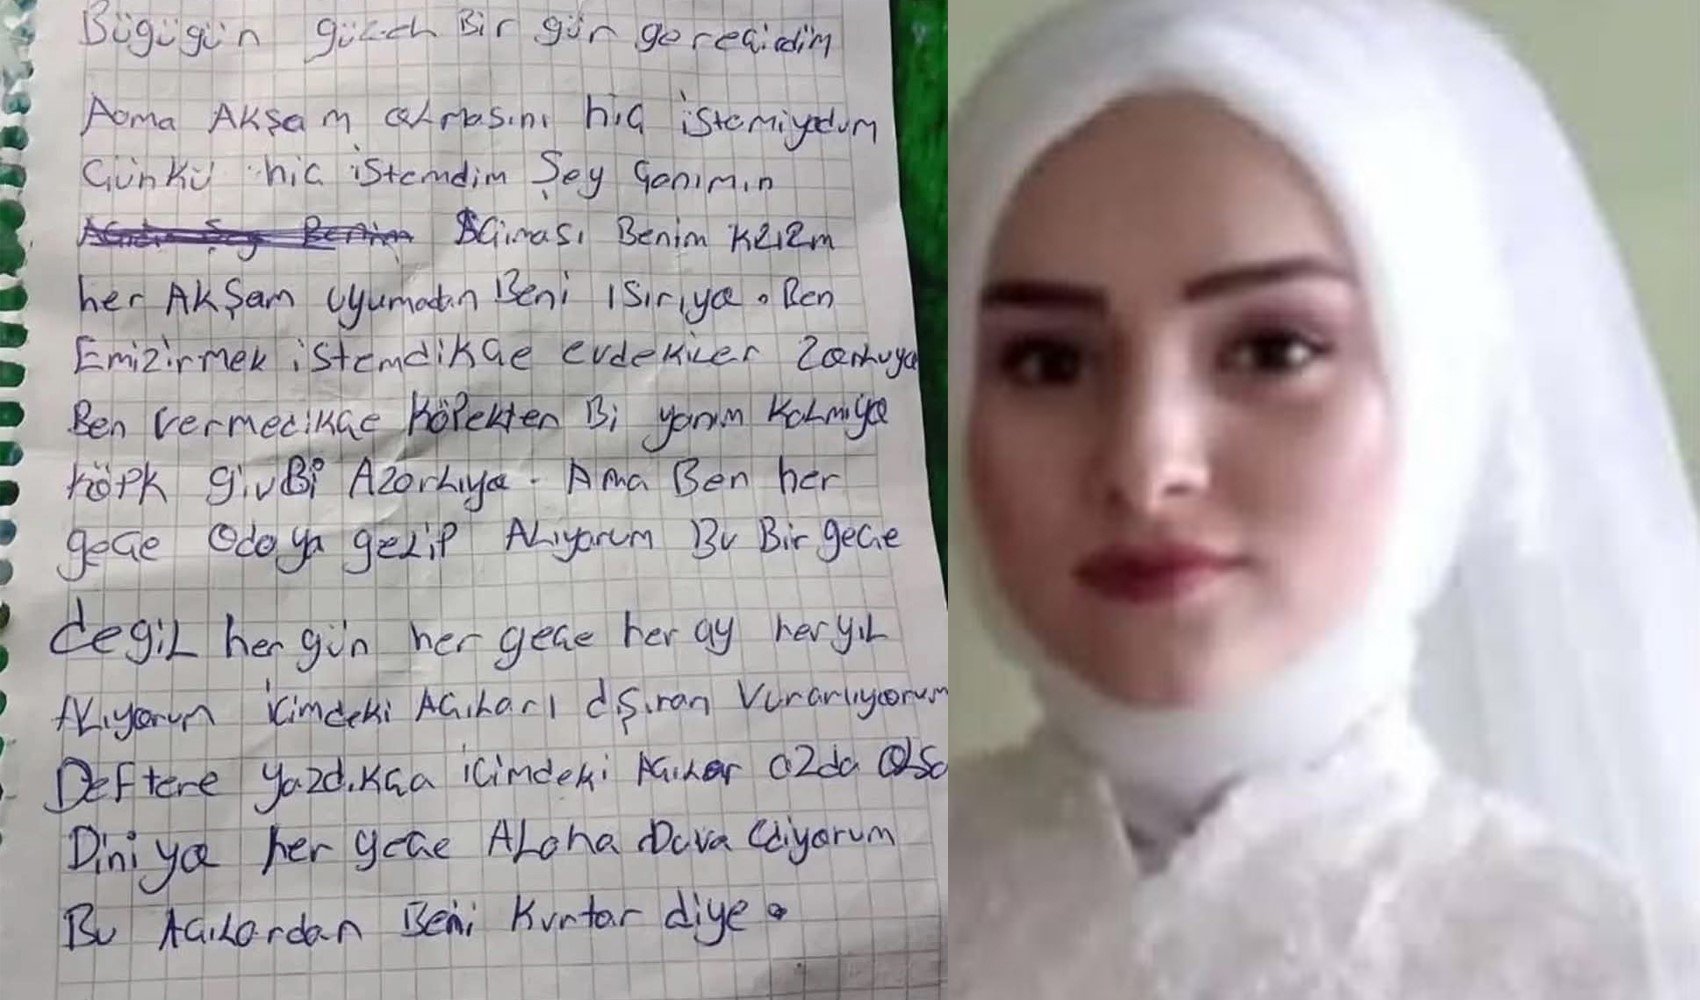 Bügügün güzel Bir gün gereçirdim
Aoma AKŞam oLmasını hiç istemiyodum
Günkü hiç istemdim Şey Ganımın
Açıması Benim Kzızm
her AKŞam uyumadan Beni ısırıya. Ben
Emizirmek istemdikçe evdekiler Zorluya
Ben vermedikçe Köpekten Bi yanım KaLmıya
Köpk givBi Azarlıya. Ama Ben her
geçe Odaya geLip ALıyorum Bu Bir geçe
degiL her gün her geçe her ay her yıL
ALıyorum içimdeki AçıLarı dışıran Vurarlıyorum
DeFtere yazdıkça içimdeki AçıLar azda oLsa
Diniya her geçe ALaha Duva Ediyorum
Bu AçıLardan Beni Kurtar diye.